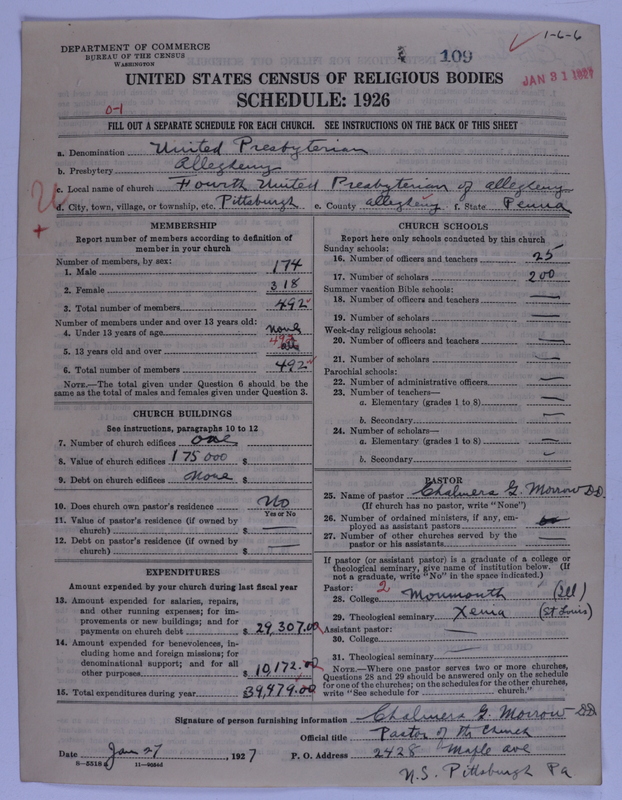 1-6-6
DEPARTMENT OF COMMERCE
BUREAU OF THE CENSUS
WASHINGTON
109
JAN 31 1927
UNITED STATES CENSUS OF RELIGIOUS BODIES
SCHEDULE: 1926
0-1
FILL OUT A SEPARATE SCHEDULE FOR EACH CHURCH. SEE INSTRUCTIONS ON THE BACK OF THIS SHEET
a. Denomination United Presbyterian
b. Presbytery Allegheny
c. Local name of church Fourth United Presbyterian of allegheny
d. City, town, village, or township, etc. Pittsburgh e. County allegheny f. State Penna
MEMBERSHIP
Report number of members according to definition of member in your church
Number of members, by sex:
1. Male 174
2. Female 318
3. Total number of members 492
Number of members under and over 13 years old:
4. Under 13 years of age none
5. 13 years old and over 492
6. Total number of members 492
NOTE.—The total given under Question 6 should be the same as the total of males and females given under Question 3.
CHURCH BUILDINGS
See instructions, paragraphs 10 to 12
7. Number of church edifices one
8. Value of church edifices 175 000 $
9. Debt on church edifices None $
10. Does church own pastor's residence No
Yes or No
11. Value of pastor's residence (if owned by church) $ —
12. Debt on pastor's residence (if owned by church) $ —
EXPENDITURES
Amount expended by your church during last fiscal year
13. Amount expended for salaries, repairs, and other running expenses; for improvements or new buildings; and for payments on church debt $ 29,307.00
14. Amount expended for benevolences, including home and foreign missions; for denominational support; and for all other purposes $ 10,172.00
15. Total expenditures during year $39,479.00
CHURCH SCHOOLS
Report here only schools conducted by this church
Sunday schools:
16. Number of officers and teachers 25
17. Number of scholars 200
Summer vacation Bible schools:
18. Number of officers and teachers —
19. Number of scholars —
Week-day religious schools:
20. Number of officers and teachers —
21. Number of scholars —
Parochial schools:
22. Number of administrative officers —
23. Number of teachers—
a. Elementary (grades 1 to 8) —
b. Secondary —
24. Number of scholars—
a. Elementary (grades 1 to 8) —
b. Secondary —
PASTOR
25. Name of pastor Chalmers G. Morrow D.D.
(If church has no pastor, write "None")
26. Number of ordained ministers, if any, employed as assistant pastors
27. Number of other churches served by the pastor or his assistants —
If pastor (or assistant pastor) is a graduate of a college or theological seminary, give name of institution below. (If not a graduate, write "No" in the space indicated.)
Pastor: 2
28. College Monmouth (Ill)
29. Theological seminary Xenia (St Louis)
Assistant pastor:
30. College —
31. Theological seminary —
NOTE.—Where one pastor serves two or more churches, Questions 28 and 29 should be answered only on the schedule for one of the churches; on the schedules for the other churches, write "See schedule for church."
Signature of person furnishing information Chalmers G. Morrow D.D.
Official title Pastor of the Church
Date Jan 27, 1927 P. O. Address 2428 Maple ave
N.S. Pittsburgh Pa